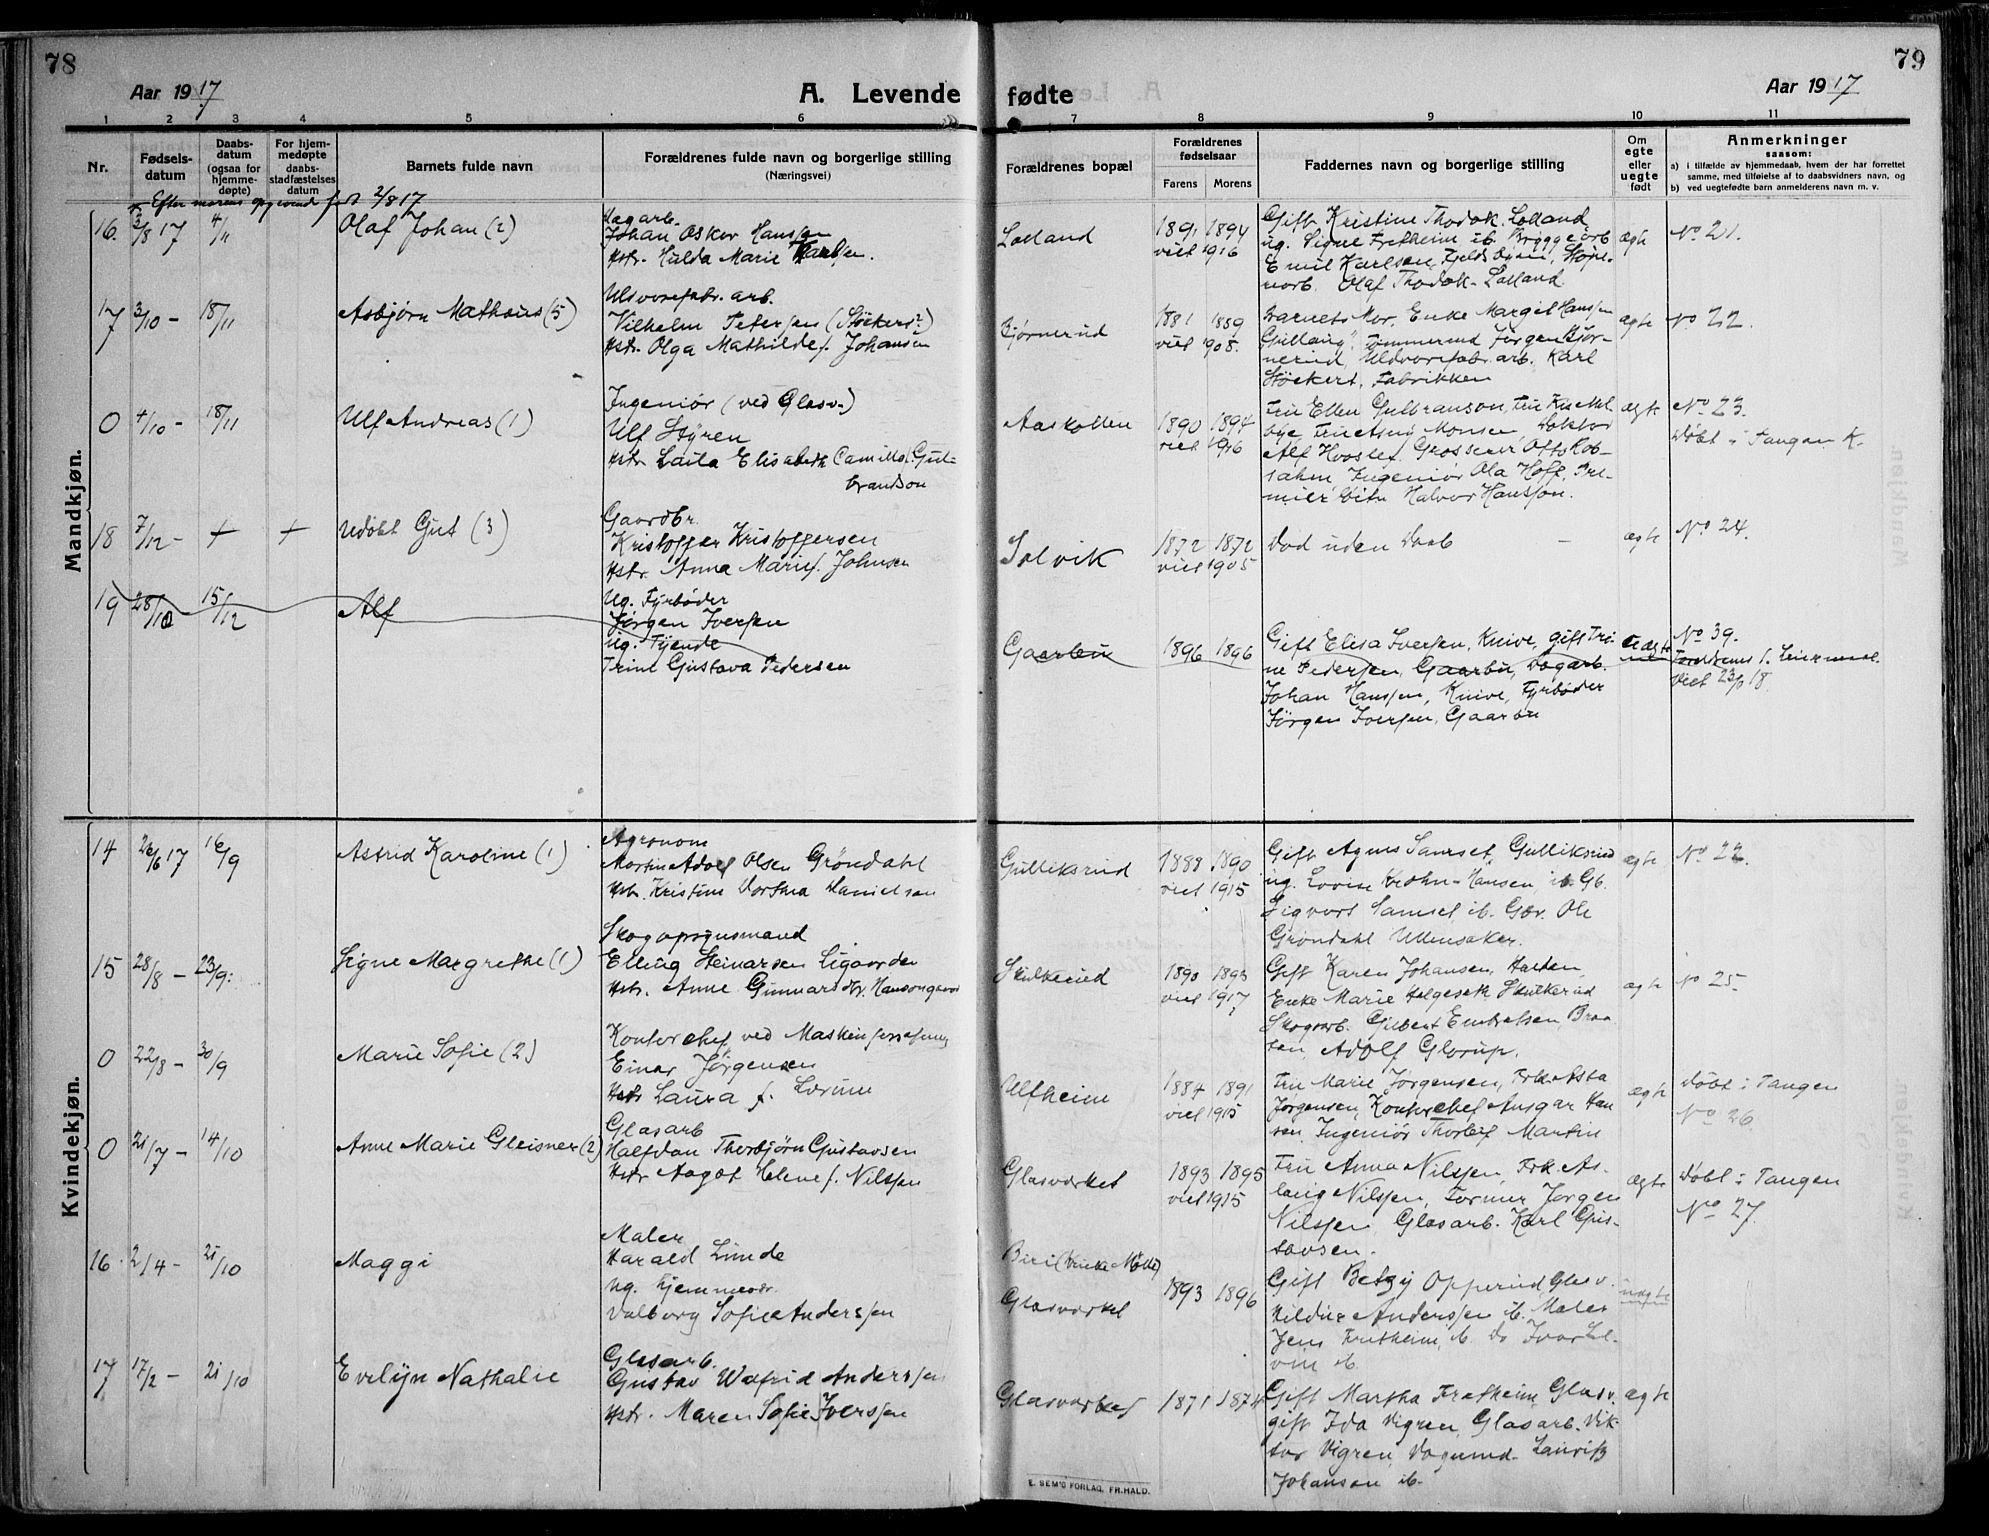 78
79
Aar 1917
A. Levende fødte
Aar 1917
1 2 3 4 5 6 7 8 9 10 11
Nr.
Fødsels-
datum
Daabs-
datum
(ogsaa for
hjemme-
døpte)
For hjem-
medøpte
daabs-
stadfæstelses
datum
Barnets fulde navn
Forældrenes fulde navn og borgerlige stilling
(Næringsvei)
Forældrenes bopæl
Forældrenes
fødselsaar
Farens Morens
Faddernes navn og borgerlige stilling
Om
egte
eller
uegte
født
Anmerkninger
saasom:
a) i tilfælde av hjemmedaab, hvem der har forrettet
samme, med tilføielse af to daabsvidners navn, og
b) ved uegtefødte barn anmelderens navn m. v.
Efter morens opgivende født 2/8 17
Mandkjøn.
16. 3/8 17 4/11 Olaf Johan (2)
Dagarb.
Johan Oskar Hanssen
Hstr. Hulda Marie
Lolland
1891 1894
viet 1916
Gift Kristine Thodok. Lolland
ug. Signe Fretheim ib. Bryggearb
Emil Karlsen, Fjeldsbyen,
Olaf Thodok. Lolland
ægte
No 21.
17 3/10 - 18/11 Asbjørn Mathæus (5)
Uldvarefabr. arb.
Vilhelm Petersen (Støckert?)
Hstr. Olga Mathilde f. Johansen
Bjørnerud
1881 1889
viet 1908.
Barnets Mor, Enke Margit Hanssen
Gullaug, Tømmermd Jørgen Bjør-
nerud, Uldvarefabr. arb. Karl
Støckert, Fabrikken
ægte
No 22.
0 4/10 - 18/11 Ulf Andreas (1)
Ingeniør (ved Glasv.)
Ulf Styren
Hstr Laila Elisabeth Camilla Gul-
brandson
Aaskollen
1890 1894
viet 1916
Fru Ellen Gulbranson, Fru
Fru Monsen Doktor
Alf Grosserer Otto Rob-
sahm, Ingeniør Ola Hoff, Pre-
mier Halvor Hansson.
ægte
No 23.
Døbt i Tangen K.
18 7/12 - + + Udøbt Gut (3)
Gaardbr.
Kristoffer Kristoffersen
Hstr. Anna Marie f. Johnsen
Solvik
1872 1872
viet 1905
Død uden Daab -
ægte
No 24.
19 28/10 15/12 Alf
Ug. Fyrbøder
Jørgen Iversen
Ug. Tjende
Trine Gustava Pedersen
Gaarbu
1896 1896
Gift Elisa Iversen, Knive, gift Tri-
ne Pedersen, Gaarbu, Dagarb.
Johan Hanssen, Knive, Fyrbøder
Jørgen Iversen, Gaarbu
Uægte
No 39.
Foreldrenes 1. Leiermaal.
viet 23/ 18.
Kvindekjøn.
14 26/6 17 16/9 Astrid Karoline (1)
Agronom
Martin Adolf Olsen Grøndahl
Hstr. Kristine Dortea Danielsen
Gulliksrud
1888 1890
viet 1915
Gift Agnes Samset, Gulliksrud
ug. Lovise Krohn-Hansen, ib. Gb.
Sigvart Samset ib. Gbr. Ole
Grøndahl Ullensaker.
ægte
No 22.
15 28/8 - 23/9. Signe Margrethe (1)
Skogopsynsmand
Elling Steinarsen Ligaarden
Hstr. Anne Gunnarsdtr. Hansongaard
Skulkerud
1890 1893
viet 1917
Gift Karen Johansen, Hasten,
Enke Marie Helgeseth Skulkerud
Skogsarb. Gilbert Braa
ten, Adolf Glorup.
ægte
No 25.
0 22/8 - 30/9 Marie Sofie (2)
Kontorchef ved
Einar Jørgensen
Hstr Laura f. Lerum
Ulfheim
1884 1891
viet 1915
Fru Marie Jørgensen, Frk. Asta
Jørgensen, Kontorchef Ansgar Han
sen, Ingeniør Thorleif Martin
ægte
Døbt i Tangen
No 26.
0 21/7 - 14/10 Anne Marie Gleisner (2)
Glasarb
Halfdan Thorbjørn Gustavsen
Hstr Aagot Helene f. Nilssen
Glasværket
1893 1895
viet 1915
Fru Anna Nilssen, Frk. As-
laug Nilssen, Former Jørgen
Nilssen, Glasarb. Karl Gus-
tavsen.
ægte
Døbt i Tangen
No 27.
16. 2/4 - 21/10 Maggi
Maler
Harald Linde
ug. hjemmevær.
Valborg Sofie Anderssen
Biri ( Mølle)
Glasværket
1893 1896
Gift Betzy Opperud, Glasv.
Hildur Anderssen ib. Maler
Jens Fretheim, ib. Do Ivar
ib.
uægte
17 17/2 - 21/10 Evelyn Nathalie
Glasarb.
Gustav Walfrid Anderssen
Hstr. Maren Sofie Iverssen
Glasværket
1871 1874
Gift Martha Fretheim, Glasv.
gift Ida Vigren, Glasarb. Vik-
tor Vigren, Laurits
Johansen ib.
ægte
E. SEM'S FORLAG, FR.HALD.